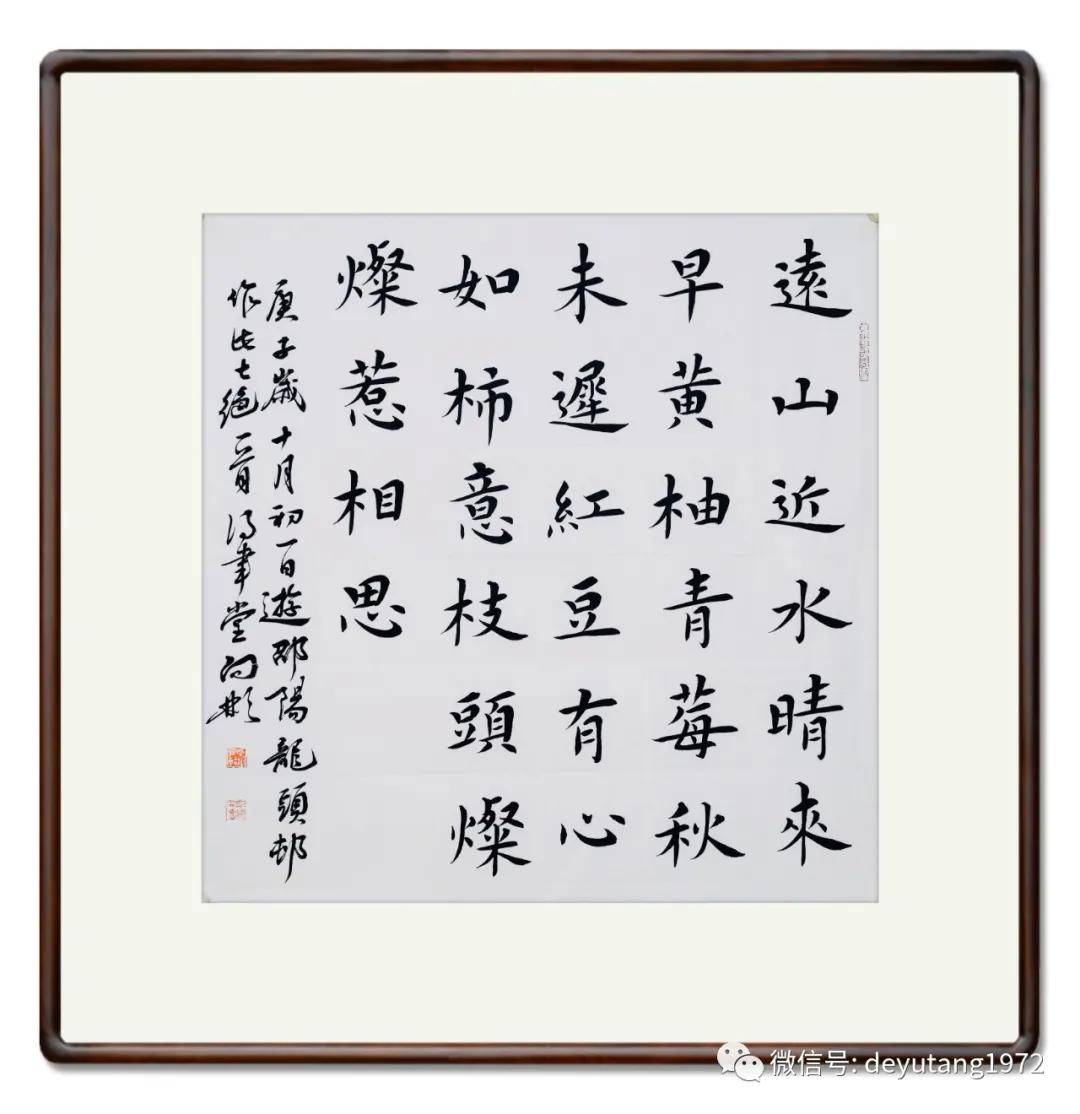 遠山近水晴來
早黃柚青莓秋
未遲紅豆有心
如柿意枝頭燦
燦惹相思
庚子歲十月初一日遊邵陽龍頭邨
作此七絕一首得聿堂向彬
微信号: deyutang1972